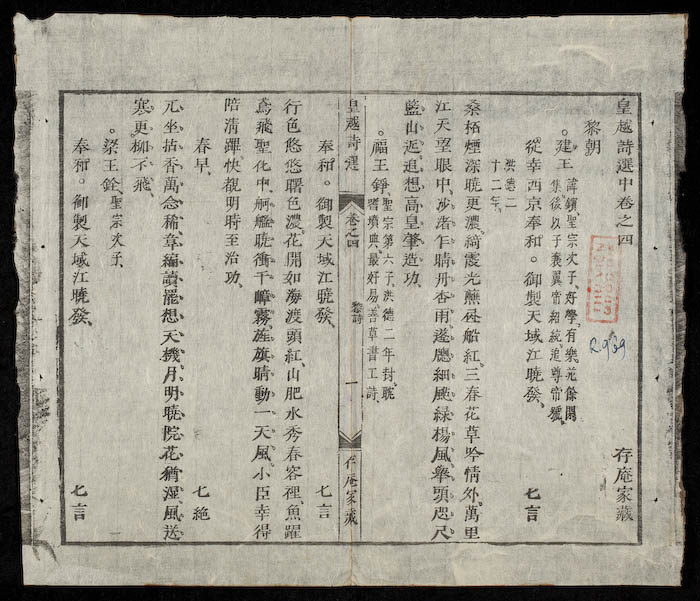 皇越詩選中卷之四 存庵家藏
黎朝
建王 諱鑌聖宗次子好學有樂苑餘閒
集後以子襄翼帝紹統追尊帝號
從幸西京奉和御製天域江曉發 洪德二十二年 七言
桑拓煙深曉更濃綺霞光蘸 船紅三春花草吟情外萬里
江天望眼中沙渚乍晴丹杏雨遂應細颭綠楊風舉頭咫尺
藍山近追想高皇肇造功
福王錚 聖宗第六子洪德二年封聰
習墳典最好易善草書工詩
奉和御製天域江曉發 七言
行色悠悠曙色濃花開如海渡頭紅山肥水秀春容裡魚躍
鳶飛聖化中舸艦曉衝千嶂霧旌旗晴動一天風小臣幸得
陪清蹕快覩明時至治功
春早 七絕
兀坐拈香萬念稀章編讀罷想天機月明曉院花猶湿風送
寒更柳不飛
梁王銓 聖宗次子
奉和御製天域江曉發 七言
皇越詩選 卷之四 黎詩 一 存庵家藏
R.939